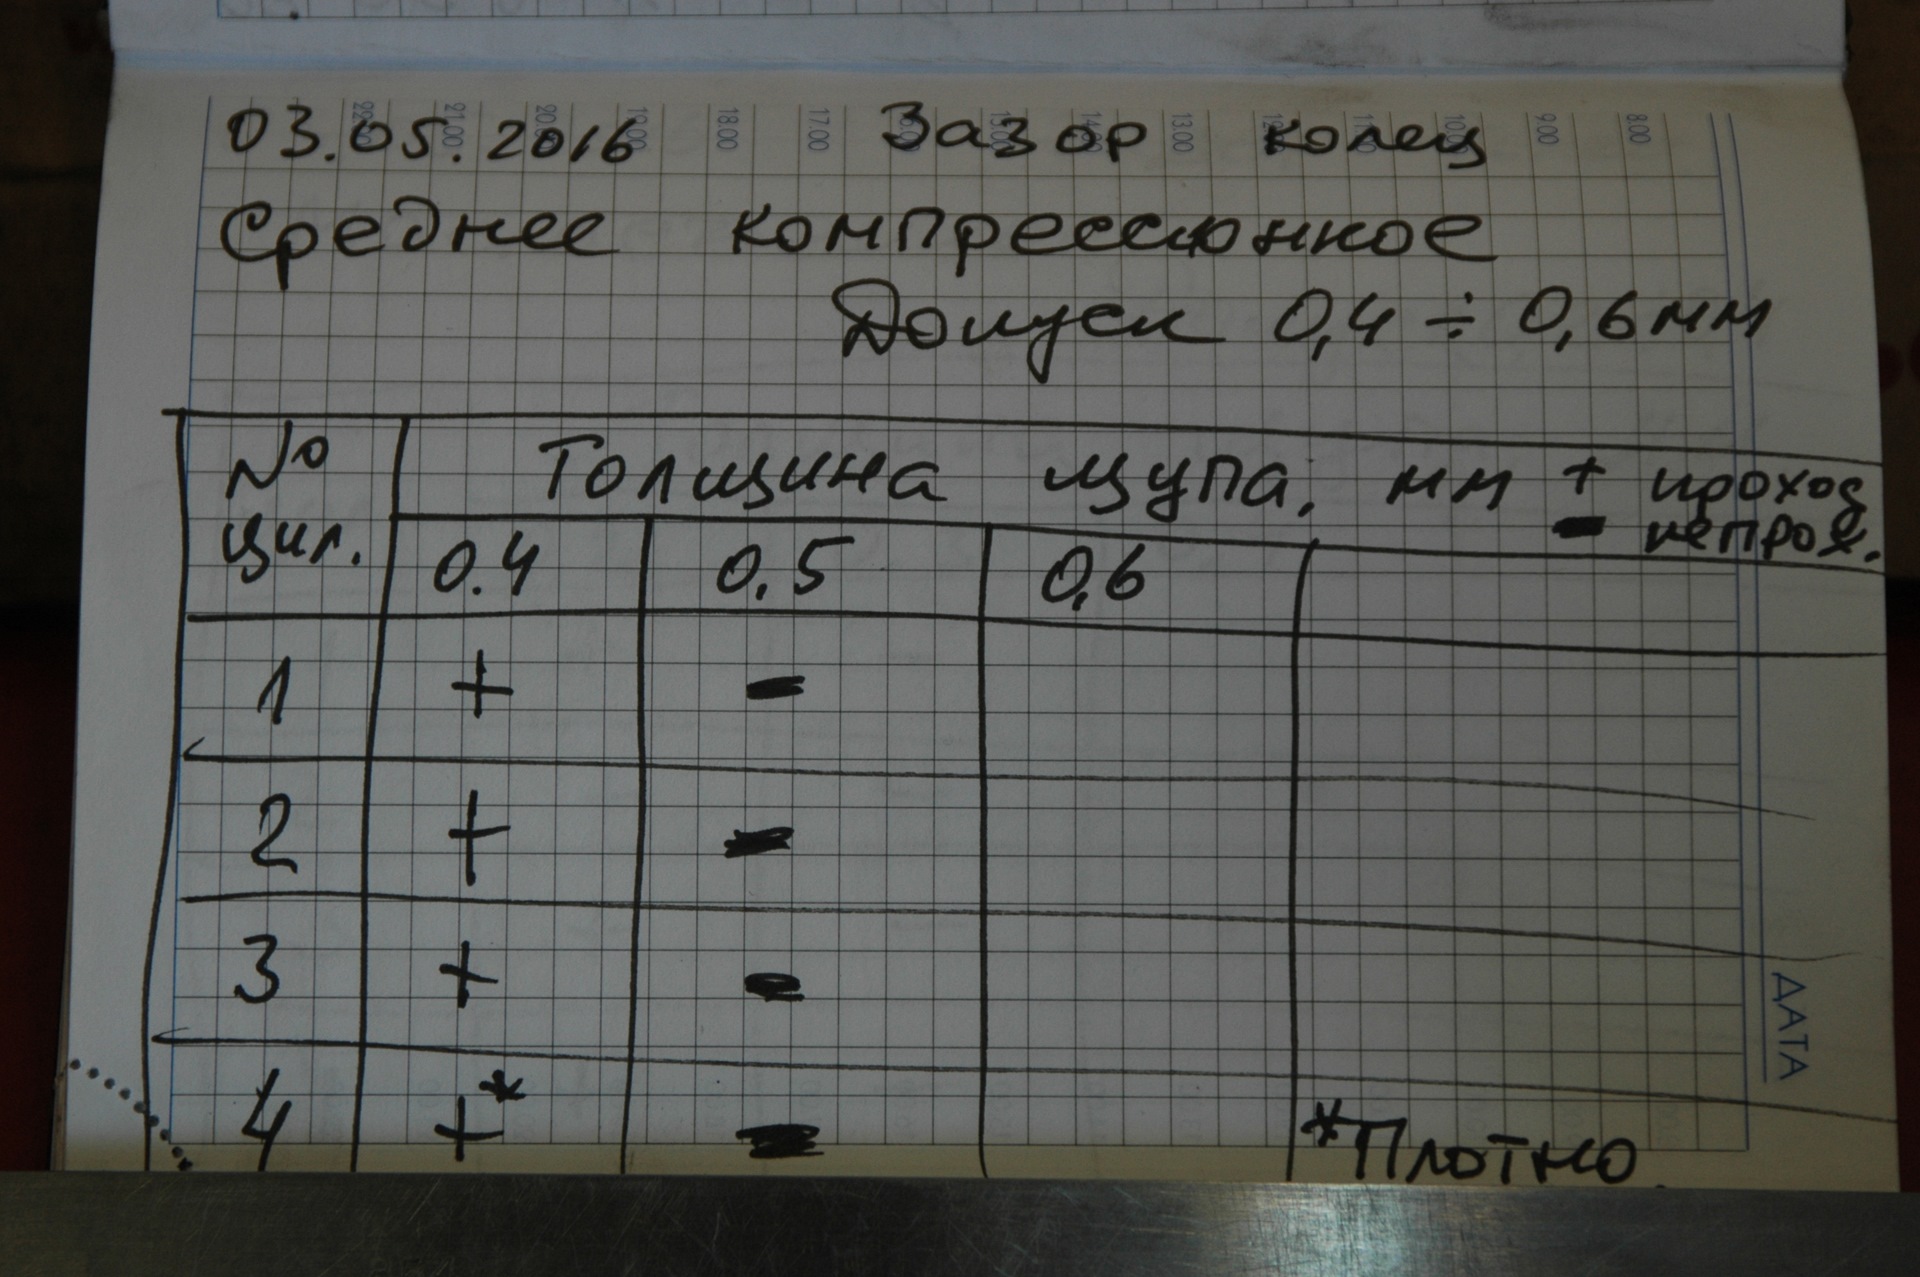 03.05.2016 Зазор колец
Среднее компрессионное
Допуск 0,4 ÷ 0,6мм
№ цил. Толщина щупа, мм + проход
- непрох.
0.4 0,5 0,6
1 + -
2 + -
3 + -
4 +* - *Плотно.
22.00 21.00 20.00 19.00 18.00 17.00 14.00 13.00 10.00 9.00 8.00
ДАТА